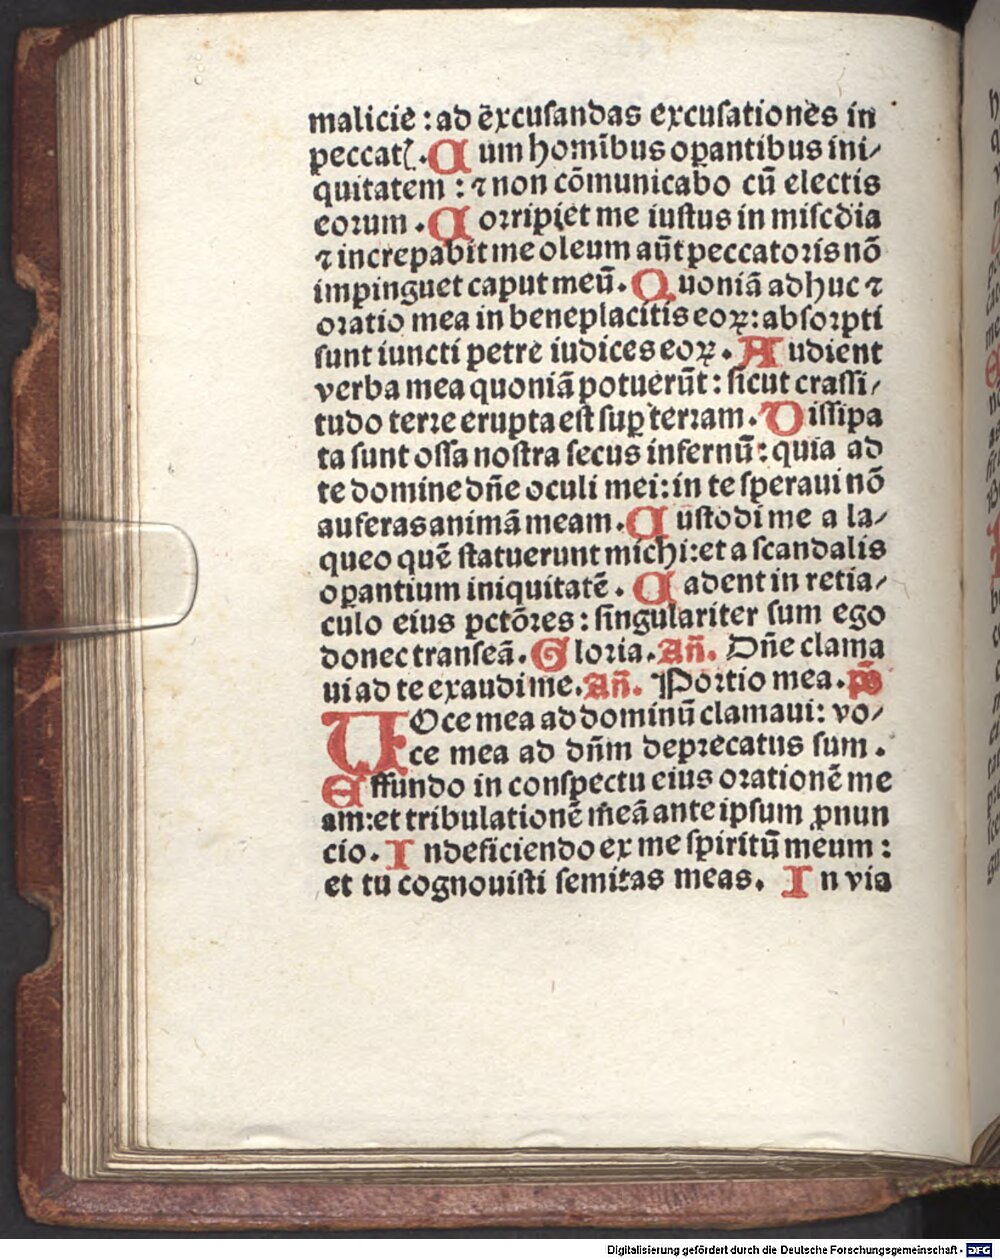 malicie : ad excusandas excusationes in
peccatꝭ. Cum homĩbus oꝑantibus ini⸗
quitatem : ⁊ non cõmunicabo cũ electis
eorum. Corripiet me iustus in misc̃dia
⁊ increpabit me oleum aũt peccatoris nõ
impinguet caput meũ. Quoniã adhuc ⁊
oratio mea in beneplacitis eoꝝ: absorpti
sunt iuncti petre iudices eoꝝ. Audient
verba mea quoniã potuerũt : sicut crassi⸗
tudo terre erupta est suꝑ terram. Dissipa
ta sunt ossa nostra secus infernũ : quia ad
te domine dñe oculi mei : in te speraui nõ
auferas animã meam. Custodi me a la⸗
queo quẽ statuerunt michi : et a scandalis
oꝑantium iniquitatẽ. Cadent in retia⸗
culo eius pctõres : singulariter sum ego
donec transeã. Gloria. Añ. Dñe clama
ui ad te exaudi me. Añ. Portio mea. p̃s
VOce mea ad dominũ clamaui : vo⸗
ce mea ad dñm deprecatus sum.
Effundo in conspectu eius orationẽ me
am : et tribulationẽ meã ante ipsum ꝓnun
cio. In deficiendo ex me spiritũ meum :
et tu cognouisti semitas meas. In via
Digitalisierung gefördert durch die Deutsche Forschungsgemeinschaft - DFG